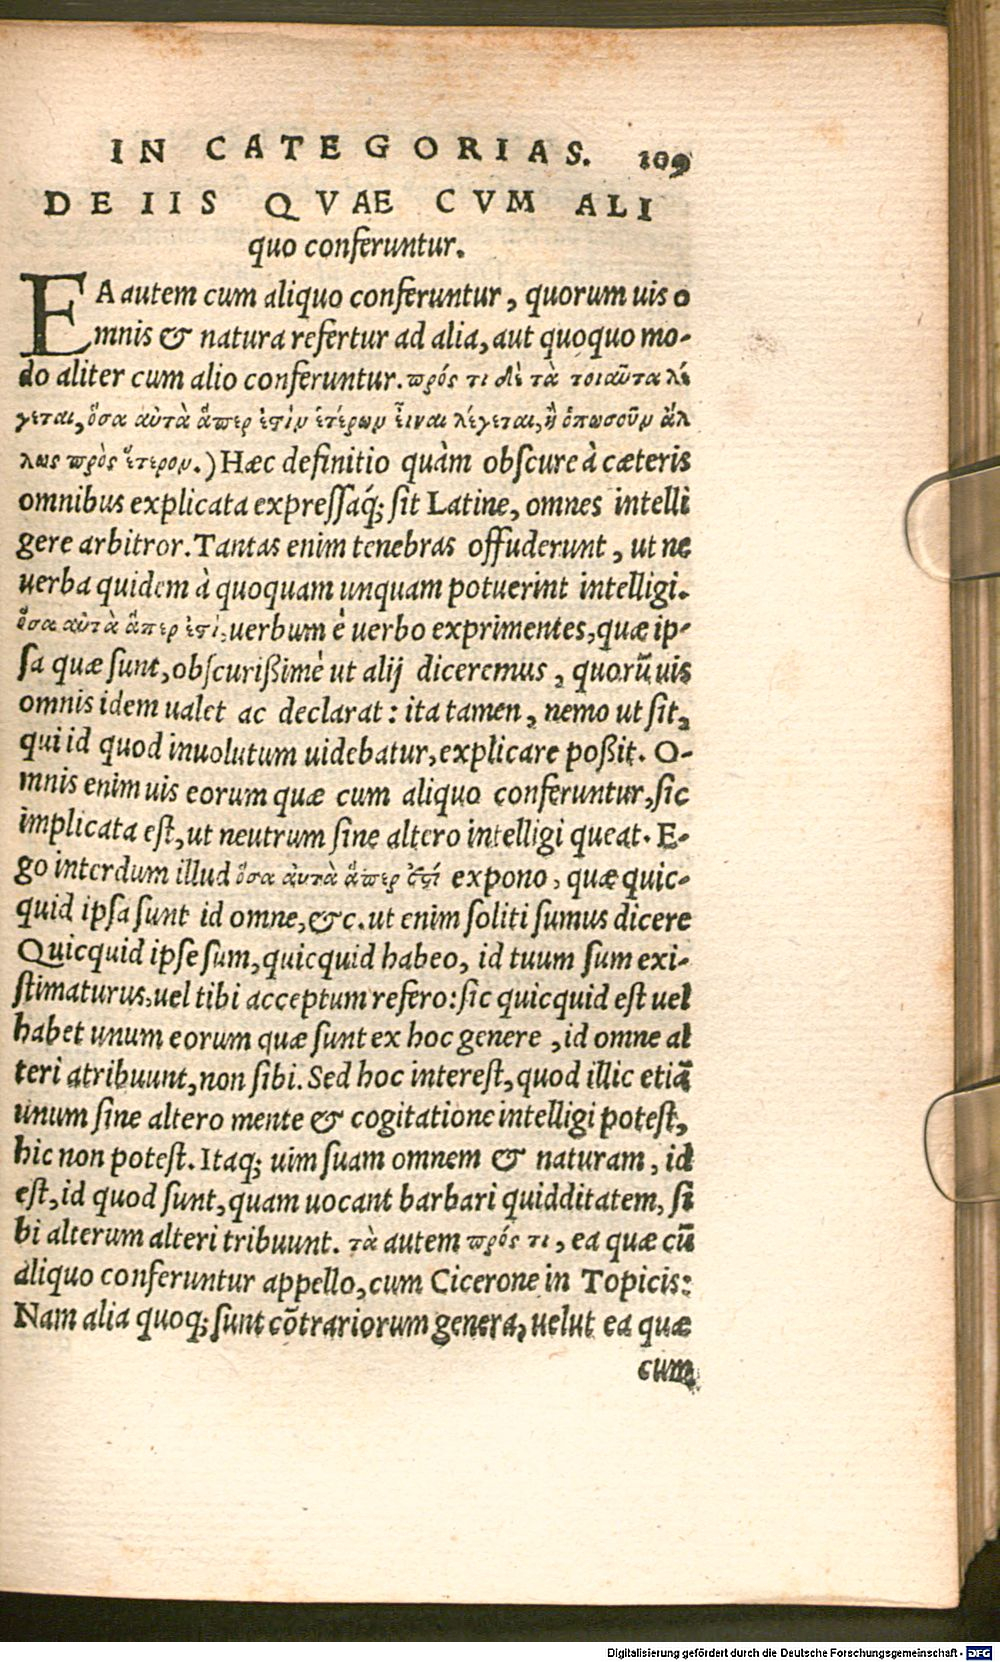 IN CATEGORIAS. 109
DE IIS QVAE CVM ALI
quo conferuntur.
EA autem cum aliquo conferuntur, quorum uis o
mnis & natura refertur ad alia, aut quoquo mo-
do aliter cum alio conferuntur. πρός τι δὲ τὰ τοιαῦτα λέ
γεται, ὅσα αὐτὰ ἅπερ ἐστὶν ἑτέρων εἶναι λέγεται, ἢ ὁπωσοῦν ἄλ
λως πρὸς ἕτερον.) Hæc definitio quàm obscure à cæteris
omnibus explicata expressaq́; sit Latine, omnes intelli
gere arbitror. Tantas enim tenebras offuderunt, ut ne
uerba quidem à quoquam unquam potuerint intelligi.
ὅσα αὐτὰ ἅπερ ἐστί, uerbum è uerbo exprimentes, quæ ip-
sa quæ sunt, obscurißimè ut alij diceremus, quorũ uis
omnis idem ualet ac declarat: ita tamen, nemo ut sit,
qui id quod inuolutum uidebatur, explicare poßit. O-
mnis enim uis eorum quæ cum aliquo conferuntur, sic
implicata est, ut neutrum sine altero intelligi queat. E-
go interdum illud ὅσα αὐτὰ ἅπερ ἐστί expono, quæ quic-
quid ipsa sunt id omne, &c. ut enim soliti sumus dicere
Quicquid ipse sum, quicquid habeo, id tuum sum exi-
stimaturus, uel tibi acceptum refero: sic quicquid est uel
habet unum eorum quæ sunt ex hoc genere, id omne al
teri atribuunt, non sibi. Sed hoc interest, quod illic etiã
unum sine altero mente & cogitatione intelligi potest,
hic non potest. Itaq; uim suam omnem & naturam, id
est, id quod sunt, quam uocant barbari quidditatem, si
bi alterum alteri tribuunt. τὰ autem πρός τι, ea quæ cũ
aliquo conferuntur appello, cum Cicerone in Topicis:
Nam alia quoq; sunt cõtrariorum genera, uelut ea quæ
cum
Digitalisierung gefördert durch die Deutsche Forschungsgemeinschaft - DFG